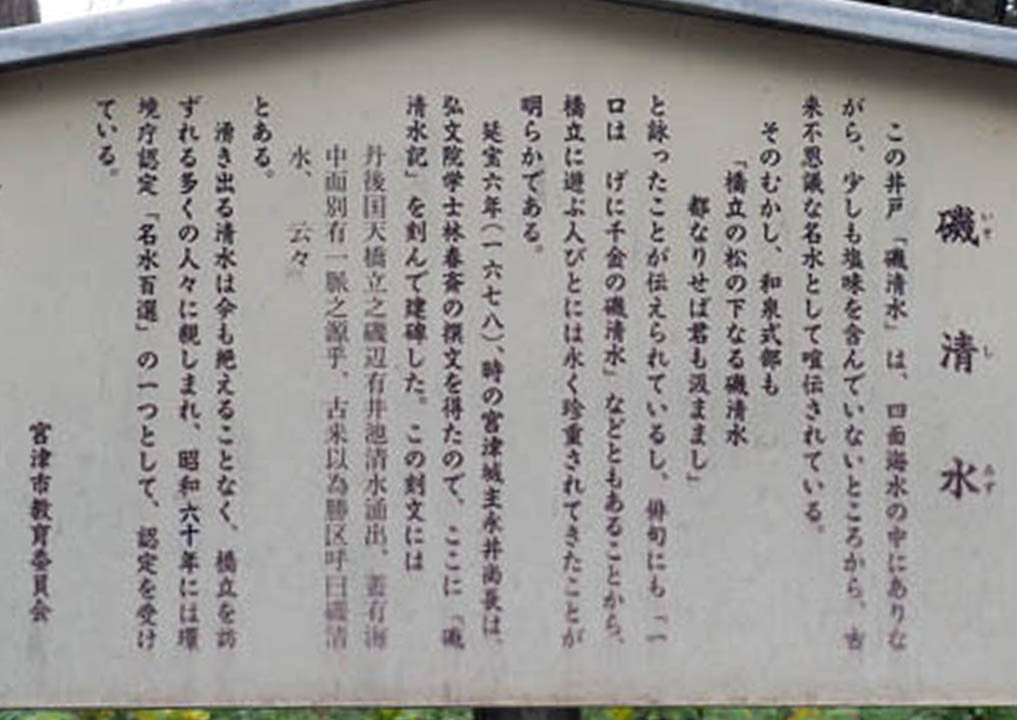 磯清水
いそしみず
この井戸「磯清水」は、四面海水の中にありな
がら、少しも塩味を含んでいないところから、古
来不思議な名水として喧伝されている。
そのむかし、和泉式部も
「橋立の松の下なる磯清水
都なりせば君も汲ままし」
と詠ったことが伝えられているし、俳句にも「一
口は げに千金の磯清水」などともあることから、
橋立に遊ぶ人びとには永く珍重されてきたことが
明らかである。
延宝六年（一六七八）、時の宮津城主永井尚長は、
弘文院学士林春斎の撰文を得たので、ここに「磯
清水記」を刻んで建碑した。この刻文には
丹後国天橋立之磯辺有井池清水涌出、蓋有海
中而別有一脈之源乎、古来以為勝区呼曰磯清
水、 云々
とある。
湧き出る清水は今も絶えることなく、橋立を訪
ずれる多くの人々に親しまれ、昭和六十年には環
境庁認定「名水百選」の一つとして、認定を受け
ている。
宮津市教育委員会